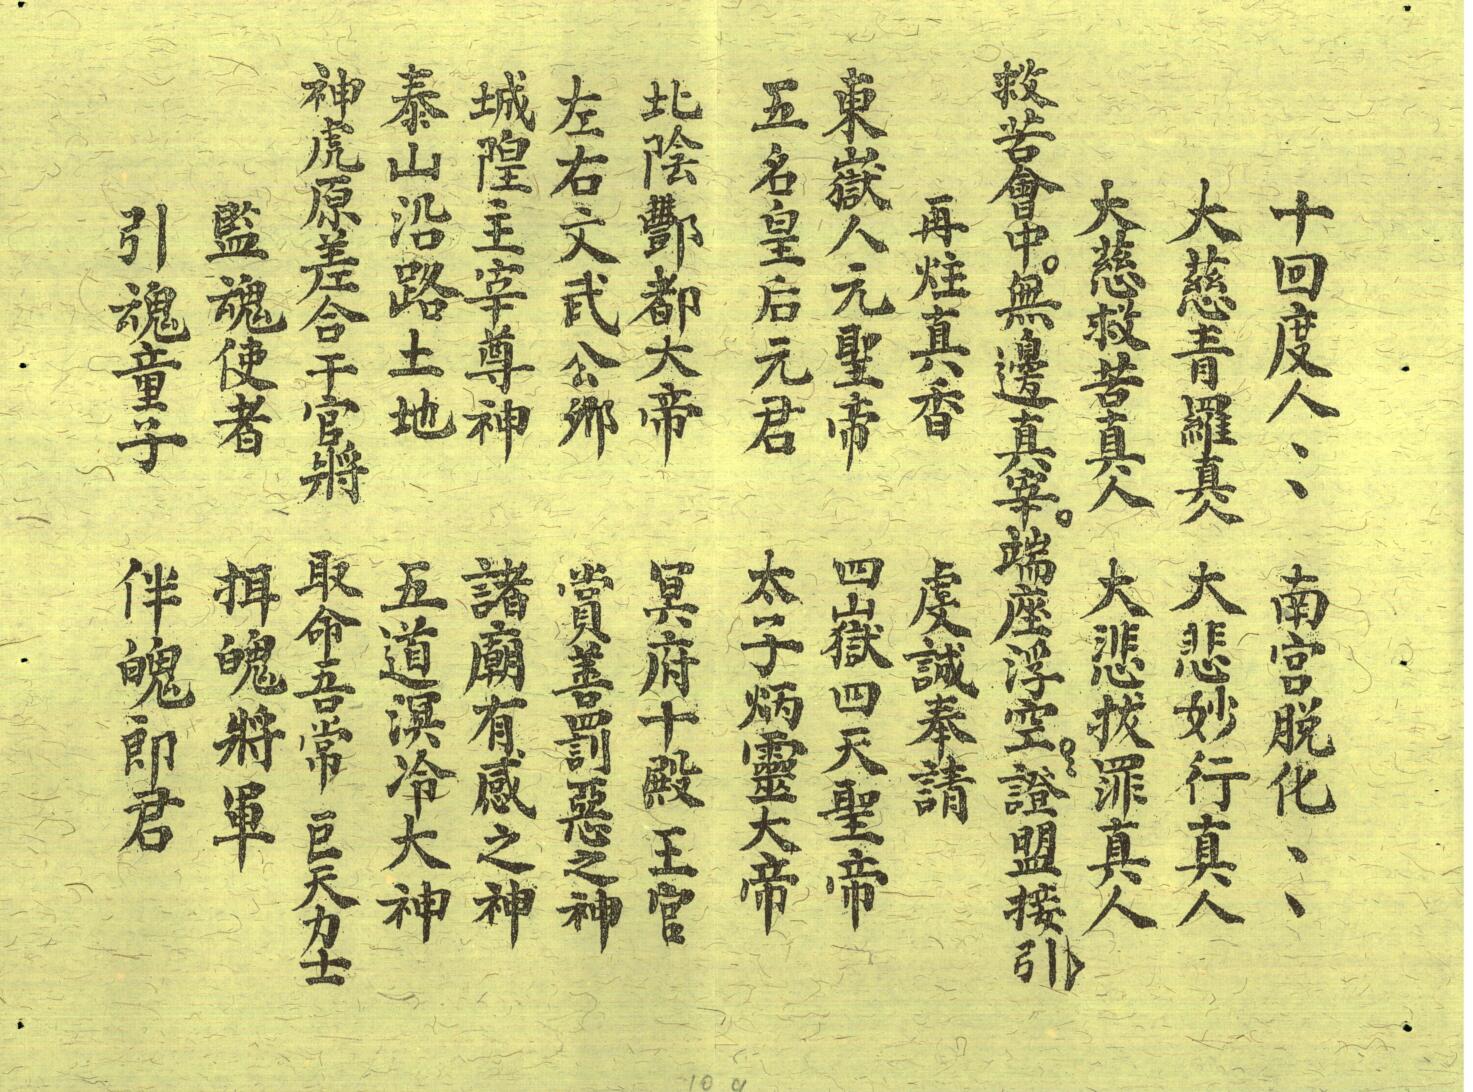 十回度人、、 南宮脱化、、
大慈青羅真人 大悲妙行真人
大慈救苦真人 大悲拔罪真人
救苦會中。無邊真宰。端座浮空。證盟接引
再炷真香 虔誠奉請
東嶽人元聖帝 四嶽四天聖帝
五名皇后元君 太子炳靈大帝
北陰酆都大帝 冥府十殿王官
左右文武公卿 賞善罰惡之神
城隍主宰尊神 諸廟有感之神
泰山沿路土地 五道溟冷大神
神虎原差合干官將 取命吾常 巨天力士
監魂使者 拑魄將軍
引魂童子 伴魄郎君
10 a